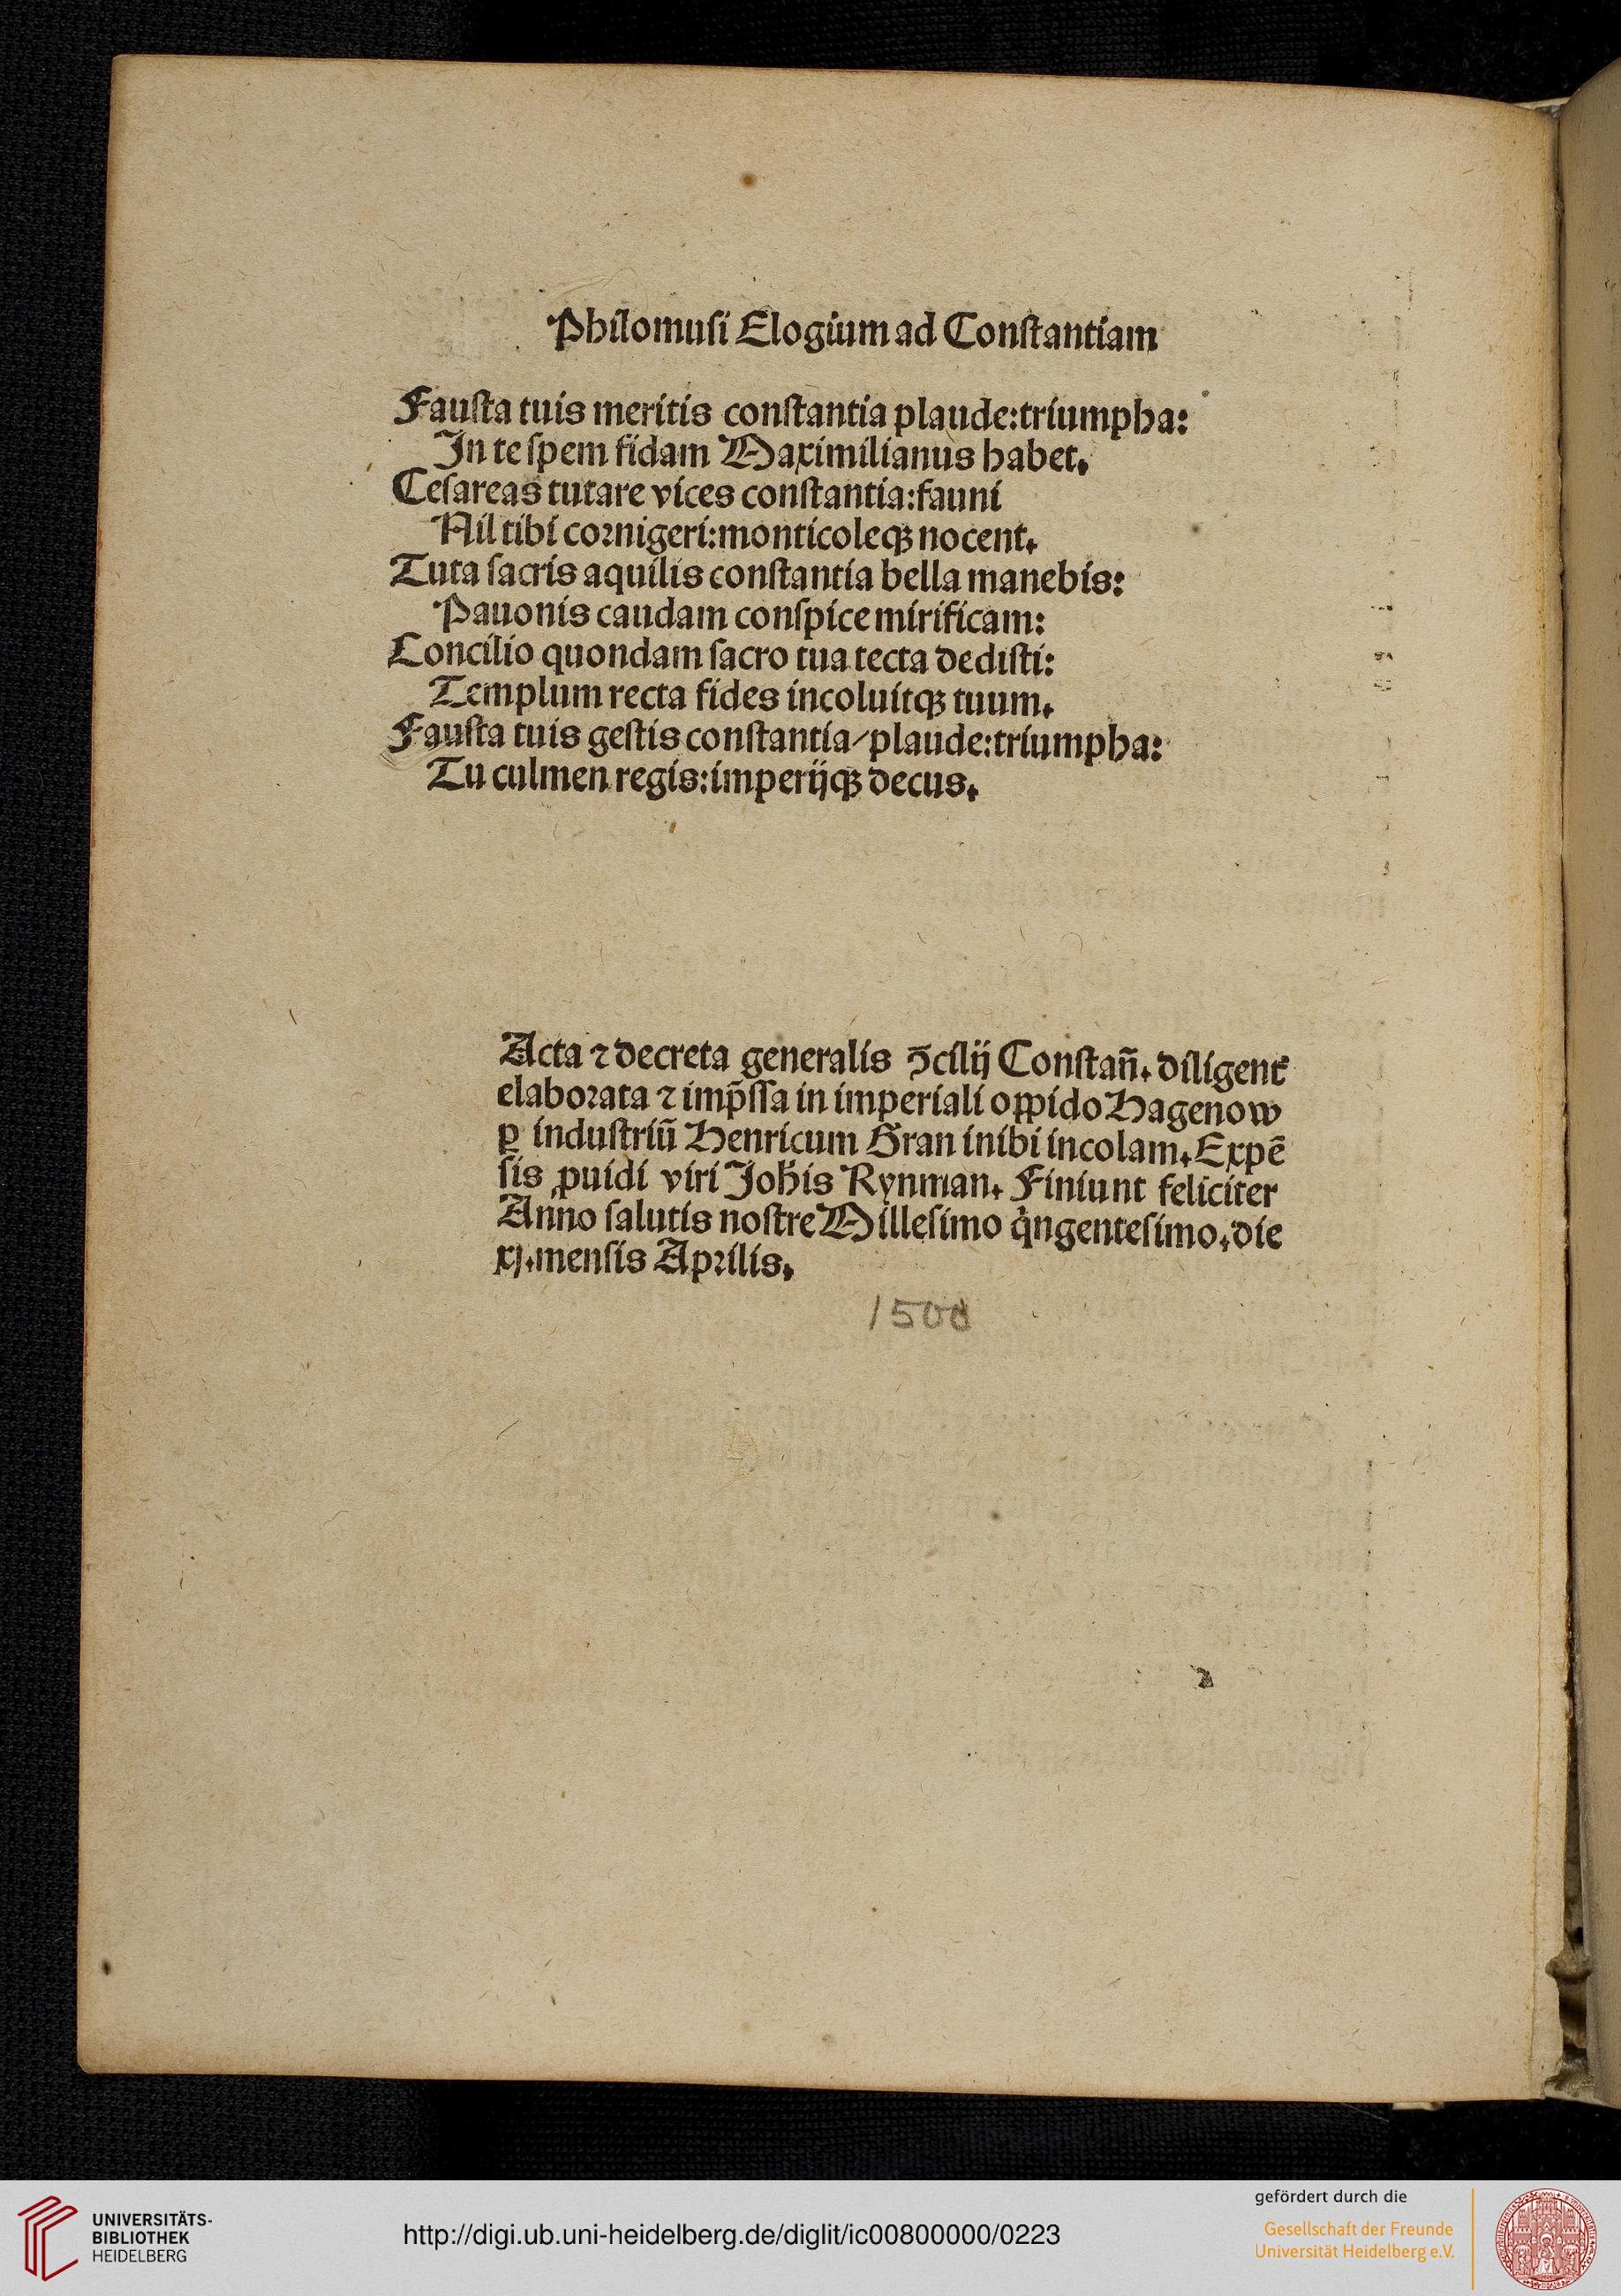 Philomuſi Elogium ad Conſtantiam
Fauſta tuis meritis conſtantia plaude:triumpha:
In te ſpem fidam Maximilianus habet.
Ceſareas tutare vices conſtantia:fauni
Nil tibi coꝛnigeri:monticoleqꝫ nocent.
Tuta ſacris aquilis conſtantia bella manebis:
Pauonis caudam conſpice mirificam:
Concilio quondam ſacro tua tecta dediſti:
Templum recta fides incoluitqꝫ tuum.
Fauſta tuis geſtis conſtantia/plaude:triumpha:
Tu culmen regis:imperijqꝫ decus.
Acta ⁊ decreta generalis ꝯ̄cilij Conſtan̄. diligent᷑
elaboꝛata ⁊ imp̄ſſa in imperiali oppido Hagenow
ꝑ induſtriū Henricum Gran inibi incolam. Expē
ſis ꝓuidi viri Joh̄is Rynman. Finiunt feliciter
Anno ſalutis noſtre Milleſimo qͥngenteſimo. die
xj. menſis Apꝛilis.
1500
UNIVERSITÄTS-
BIBLIOTHEK
HEIDELBERG
http://digi.ub.uni-heidelberg.de/diglit/ic00800000/0223
gefördert durch die
Gesellschaft der Freunde
Universität Heidelberg e.V.